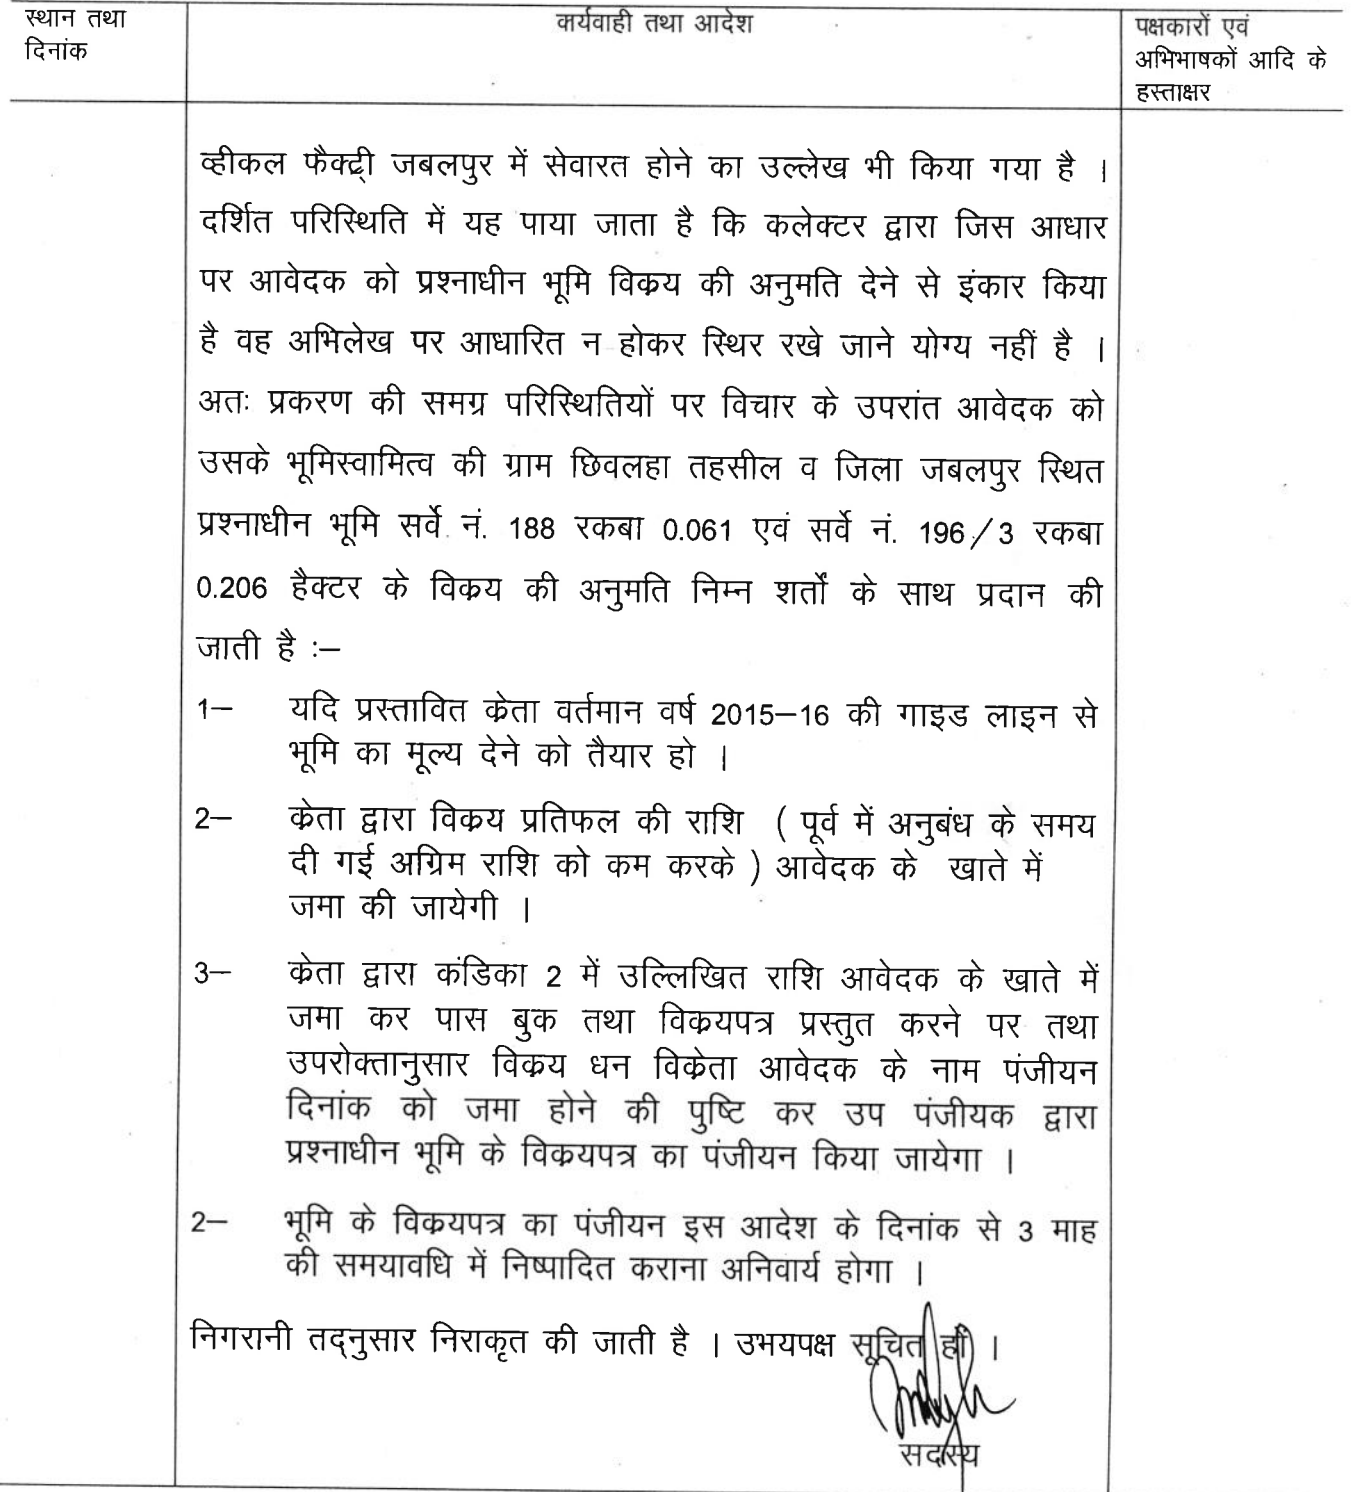 स्थान तथा
दिनांक
कार्यवाही तथा आदेश
पक्षकारों एवं
अभिभाषकों आदि के
हस्ताक्षर
व्हीकल फैक्ट्री जबलपुर में सेवारत होने का उल्लेख भी किया गया है ।
दर्शित परिस्थिति में यह पाया जाता है कि कलेक्टर द्वारा जिस आधार
पर आवेदक को प्रश्नाधीन भूमि विक्रय की अनुमति देने से इंकार किया
है वह अभिलेख पर आधारित न होकर स्थिर रखे जाने योग्य नहीं है ।
अतः प्रकरण की समग्र परिस्थितियों पर विचार के उपरांत आवेदक को
उसके भूमिस्वामित्व की ग्राम छिवलहा तहसील व जिला जबलपुर स्थित
प्रश्नाधीन भूमि सर्वे नं. 188 रकबा 0.061 एवं सर्वे नं. 196/3 रकबा
0.206 हैक्टर के विक्रय की अनुमति निम्न शर्तों के साथ प्रदान की
जाती है :–
1– यदि प्रस्तावित क्रेता वर्तमान वर्ष 2015–16 की गाइड लाइन से
भूमि का मूल्य देने को तैयार हो ।
2– क्रेता द्वारा विक्रय प्रतिफल की राशि ( पूर्व में अनुबंध के समय
दी गई अग्रिम राशि को कम करके ) आवेदक के खाते में
जमा की जायेगी ।
3– क्रेता द्वारा कंडिका 2 में उल्लिखित राशि आवेदक के खाते में
जमा कर पास बुक तथा विक्रयपत्र प्रस्तुत करने पर तथा
उपरोक्तानुसार विक्रय धन विक्रेता आवेदक के नाम पंजीयन
दिनांक को जमा होने की पुष्टि कर उप पंजीयक द्वारा
प्रश्नाधीन भूमि के विक्रयपत्र का पंजीयन किया जायेगा ।
2– भूमि के विक्रयपत्र का पंजीयन इस आदेश के दिनांक से 3 माह
की समयावधि में निष्पादित कराना अनिवार्य होगा ।
निगरानी तद्नुसार निराकृत की जाती है । उभयपक्ष सूचित हों ।
सदस्य